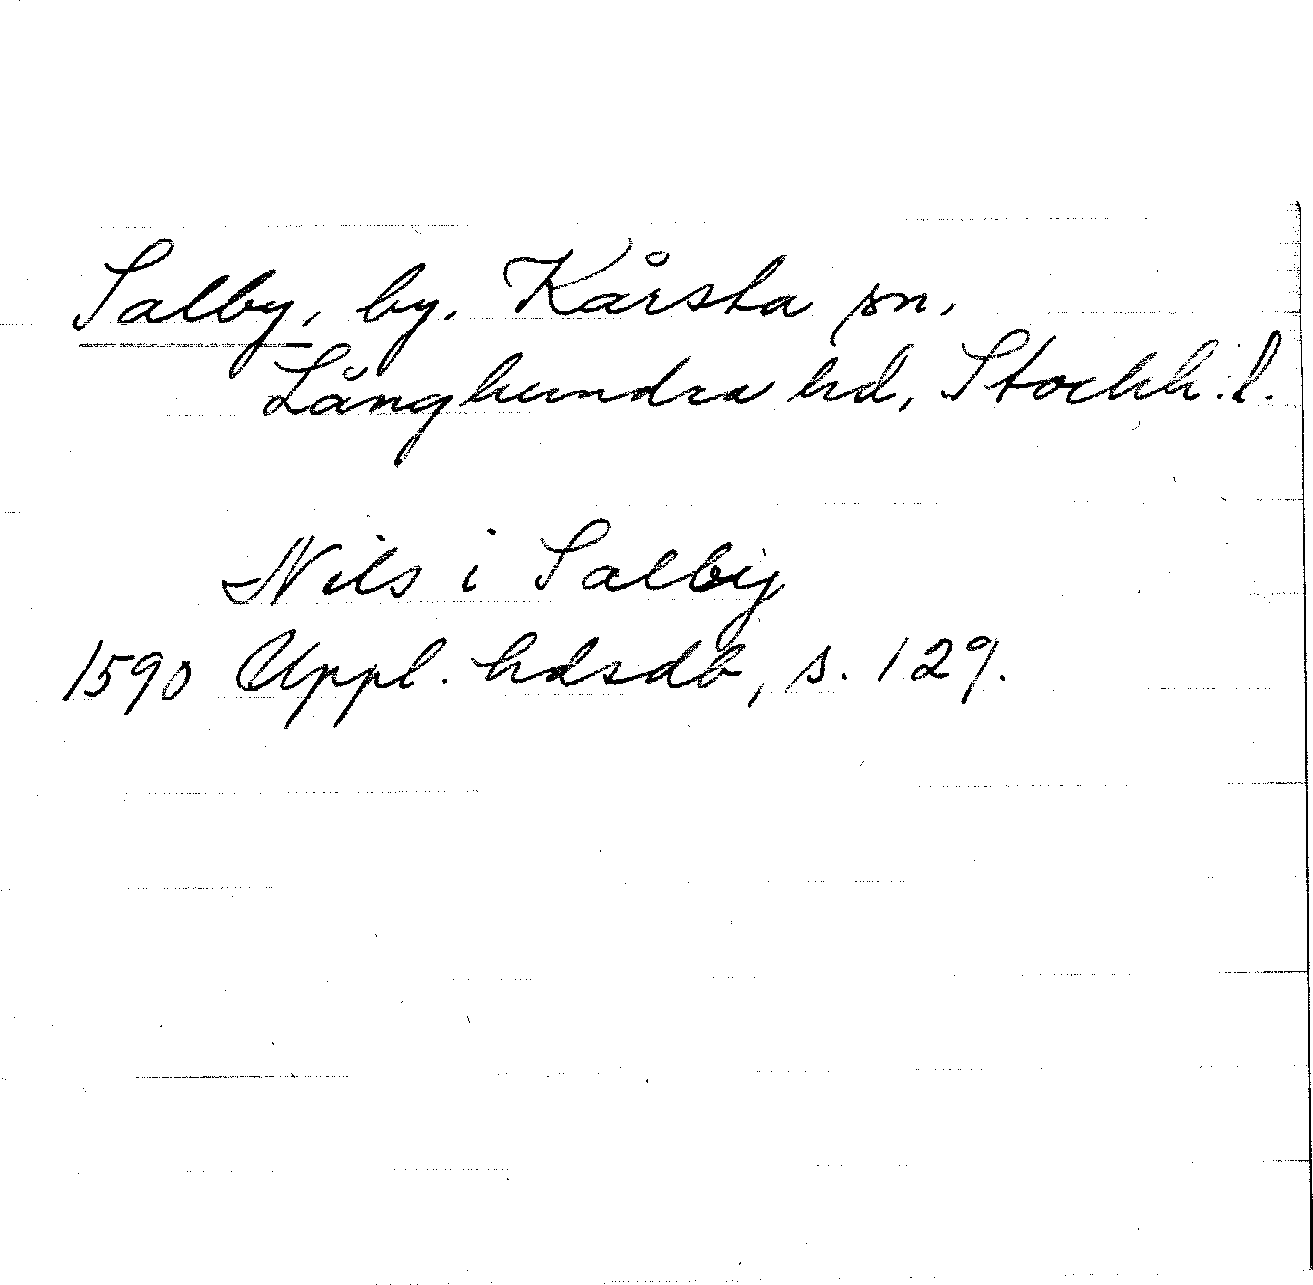 Salby, by. Kårsta sn.
Långhundra hd, Stockh. l.
Nils i Salbÿ
1590 Uppl. hdsdb, s. 129.